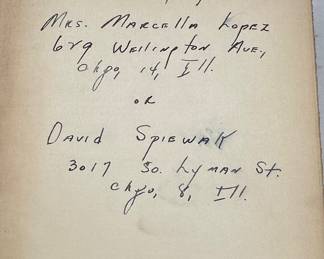 Mrs. Marcella Lopez
629 Wellington Ave.,
Chgo, 14, Ill.
or
David Spiewak
3017 So. Lyman St.
Chgo, 8, Ill.